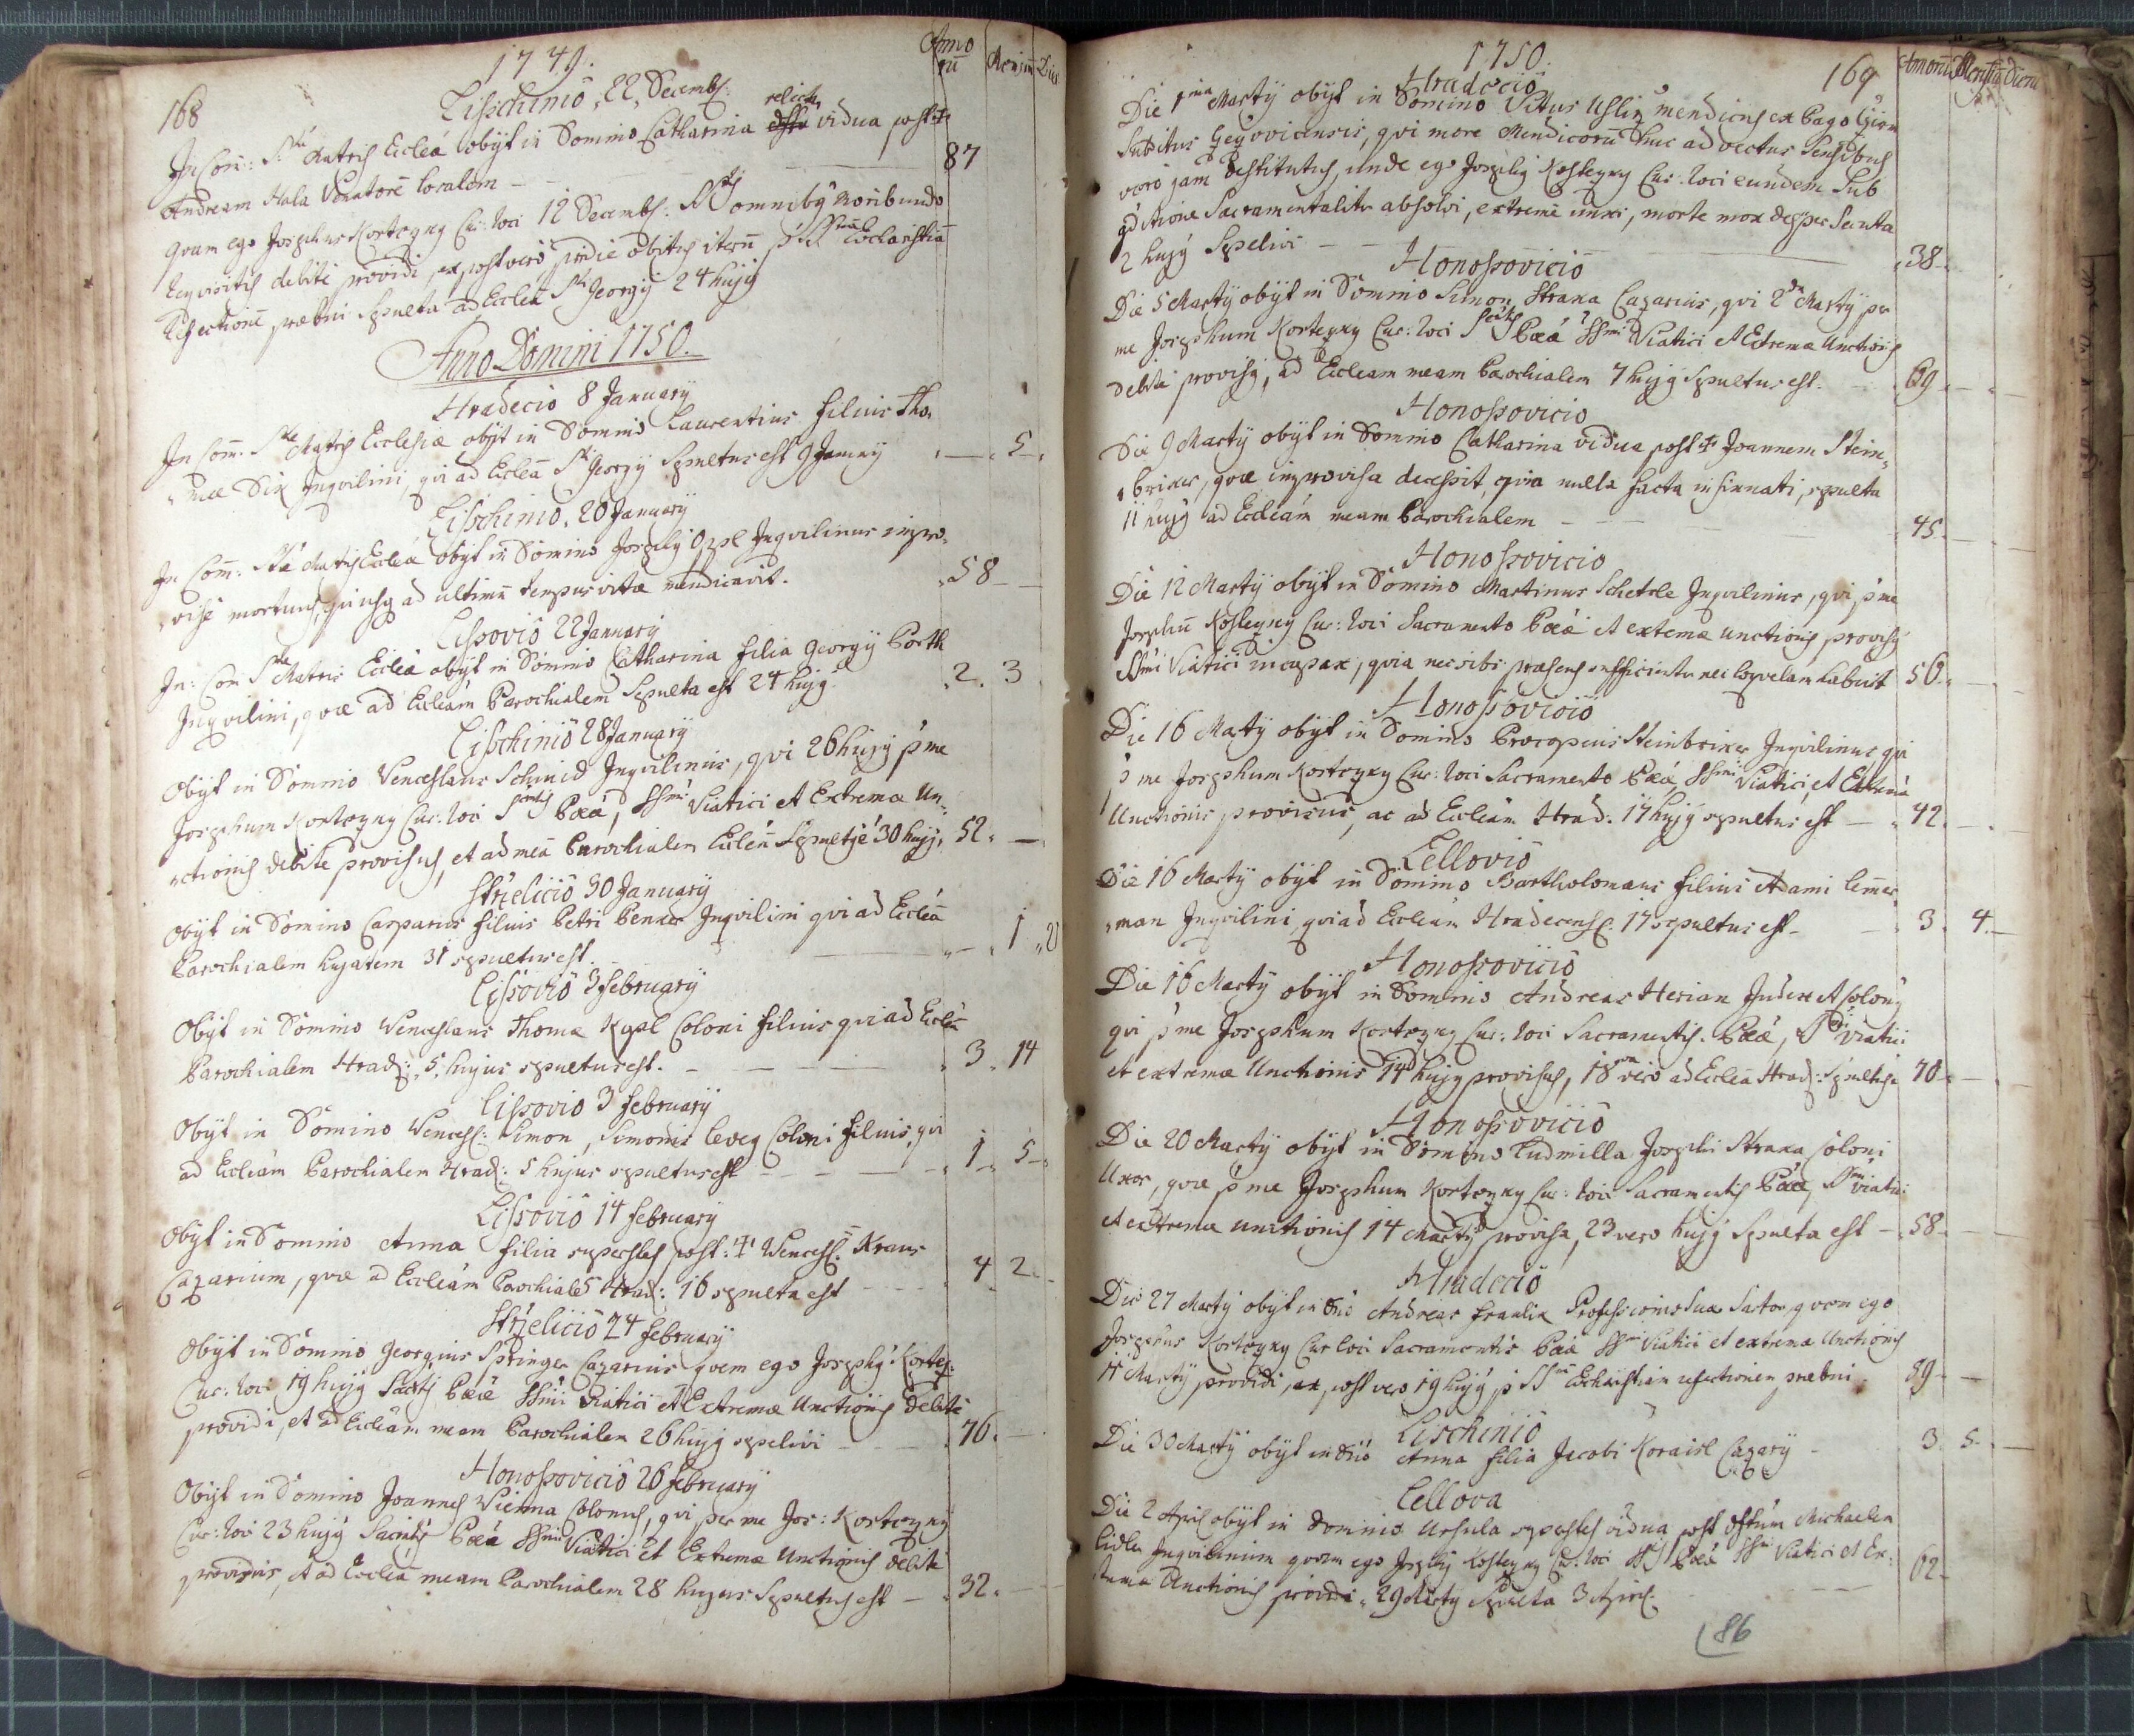 168
1749.
Annorū Mensiū Dies
Lisschinio, 22, Decembr:
In Com: Stae Matris Ecclae obyt in Domino Catharina relicta vidua post ✝
Andream Hala Venatorē localem — 87
quam ego Josephus Kortezky Cur: loci 12 Decembr: omniby moribundo
requisitis debite providi, ex post vero pridie obitus iterū Eucharistiā
refectionē praebui Sepulta ad Ecclam Sti Georgij 24 hujg
Anno Domini 1750.
Hradecio 8 January
In Com: Stae Matris Ecclesiae obyt in Domino Laurentius filius Tho„
„mae Inqvilini, qvi ad Ecclam Sti Georgij Sepultus est 9 January — 5
Lisschinio, 20 January
In Com: Stae Matris Ecclae obyt in Domino Josephg Inqvilinus impro„
„vise mortuus, qui usq ad ultimū tempus vitae mendicavit. 58 —
Lissovio 22 January
In: Com Stae Matris Ecclae obyt in Domino Catharina filia Georgij Porth
Inqvilini, qvae ad Eccleam Parochialem Sepulta est 24 hujg. 2. 3
Lisschinio 28 January
Obyt in Domino Venceslaus Schmid Inqvilinus, qvi 26 hujg p me
Josephum Kortezky Cur: loci Sactis Paeae, SSmi Viatici et Extremae Un„
„ctionis debite provisus, et ad meā Parochialem Eccleā Sepultg e 30 hujg. 52. —
Strzelicio 30 January
Obyt in Domino Casparus filius Petri Penker Inqvilini qvi ad Eccleā
Parochialem hujatem 31 sepultus est. — 1
Lissovio 3 February
Obyt in Domino Venceslaus Thomae Coloni filius qvi ad Eccleā
Parochialem Hrad: 5, hujus sepultus est. — 3. 14
Lissovio 3 February
Obyt in Domino Vencesl: Simon, Simonis Coloni filius, qvi
ad Eccleam Parochialem Hrad: 5 hujus sepultus est — 1. 5
Lissovio 14 February
Obyt in Domino Anna filia superstes post: ✝ Vencesl: Kraus
Cazarium, qvae ad Eccleam Parochialē Hrad: 16 sepulta est — 4 2.
Strzelicio 24 February
Obyt in Domino Georgius Springer Cazarius qvem ego Josephg Kortez:
Cur: loci 19 hujg Sactis Paeae SSmi Viatici et Extremae Unctionis debite
providi, et ad Eccleam meam Parochialem 26 hujg sepelivi — 76. —
Honossovicio 26 February
Obyt in Domino Joannes Vienna Colonus, qvi per me Jos: Kortezky
Cur: loci 23 hujg Sactis Paeae SSmi Viatici et Extremae Unctionis debite
provisus, et ad Eccleā meam Parochialem 28 hujus Sepultus est — 32.
1750.
169
Annorū Mensiū Dierū
Hradecio
Die 1ma Marty obyt in Domino Vitus mendicus ex Pago
Subditus qvi more Mendicorū huc advectus Sensibus
vero jam destitutus, unde ego Josephg Kortezky Cur: loci eundem Sub
conditione Sacramentaliter absolvi, extreme unxi, morte mox
2 hujg Sepelivi — 38.
Honossovicio
Die 5 Marty obyt in Domino Simon Straka Cazarius, qvi 2da Marty per
me Josephum Kortezky Cur: loci Sactis Paeae SSmi Viatici et Extremae Unctionis
debite provisg, ad Eccleam meam Parochialem 7 hujg Sepultus est. 69. —
Honossovicio
Die 9 Marty obyt in Domino Catharina vidua post ✝ Joannem Stein„
„brixer, qvae improvisa decessit, qvia nulla facta insinuati, sepulta
11 hujg ad Eccleam meam Parochialem — 45.
Honossovicio
Die 12 Marty obyt in Domino Martinus Inqvilinus, qvi p me
Josephū Kortezky Cur: loci Sacramento Paeae et extremae unctionis provisg
SSmi Viatici incapax, qvia nec sibi praesens sufficienter nec loqvelam habuit 56.
Honossovicio
Die 16 Marty obyt in Domino Procopius Steinbrixer Inqvilinus qvi
p me Josephum Kortezky Cur: loci Sacramento Paeae, SSmi Viatici, et Extremae
Unctionis provisus, ac ad Eccleam Hrad: 17 hujg sepultus est — 42. —
Cellovio
Die 16 Marty obyt in Domino Bartholomaeus filius Adami
„man Inqvilini, qvi ad Eccleam Hradecensē 17 sepultus est — 3. 4. —
Honossovicio
Die 16 Marty obyt in Domino Andreas Herian Judex et Colong
qvi p me Josephum Kortezky Cur: loci Sacramentis Paeae, Viatici
et extremae Unctionis 14 hujg provisus, 18 vero ad Eccleā Hrad: Sepultus e 70 —
Honossovicio
Die 20 Marty obyt in Domino Ludmilla Josephi Straka Coloni
Uxor, qvae p me Josephum Kortezky Cur: loci Sacramentis Paeae, SSmi Viatici
et extremae unctionis 14 Marty provisa, 23 vero hujg Sepulta est — 58.
Hradecio
Die 27 Marty obyt in Dno Andreas Professionis Suae Sartor, qvem ego
Josephus Kortezky Cur loci Sacramentis Paeae SSmi Viatici et extremae Unctionis
Marty providi, ex post vero 19 hujg p SSm Eucharistiam refectionem praebui. 89 —
Lischinio
Die 30 Marty obyt in Dno Anna filia Jacobi Cazary — 3. 5. —
Cellova
Die 2 April obyt in Domino Ursula superstes vidua post Michaelem
Inqvilinum qvam ego Josephg Kortezky Cur: loci Paeae SSmi Viatici et Ex„
„tremae Unctionis providi 29 Marty Sepulta 3 April. 62
86